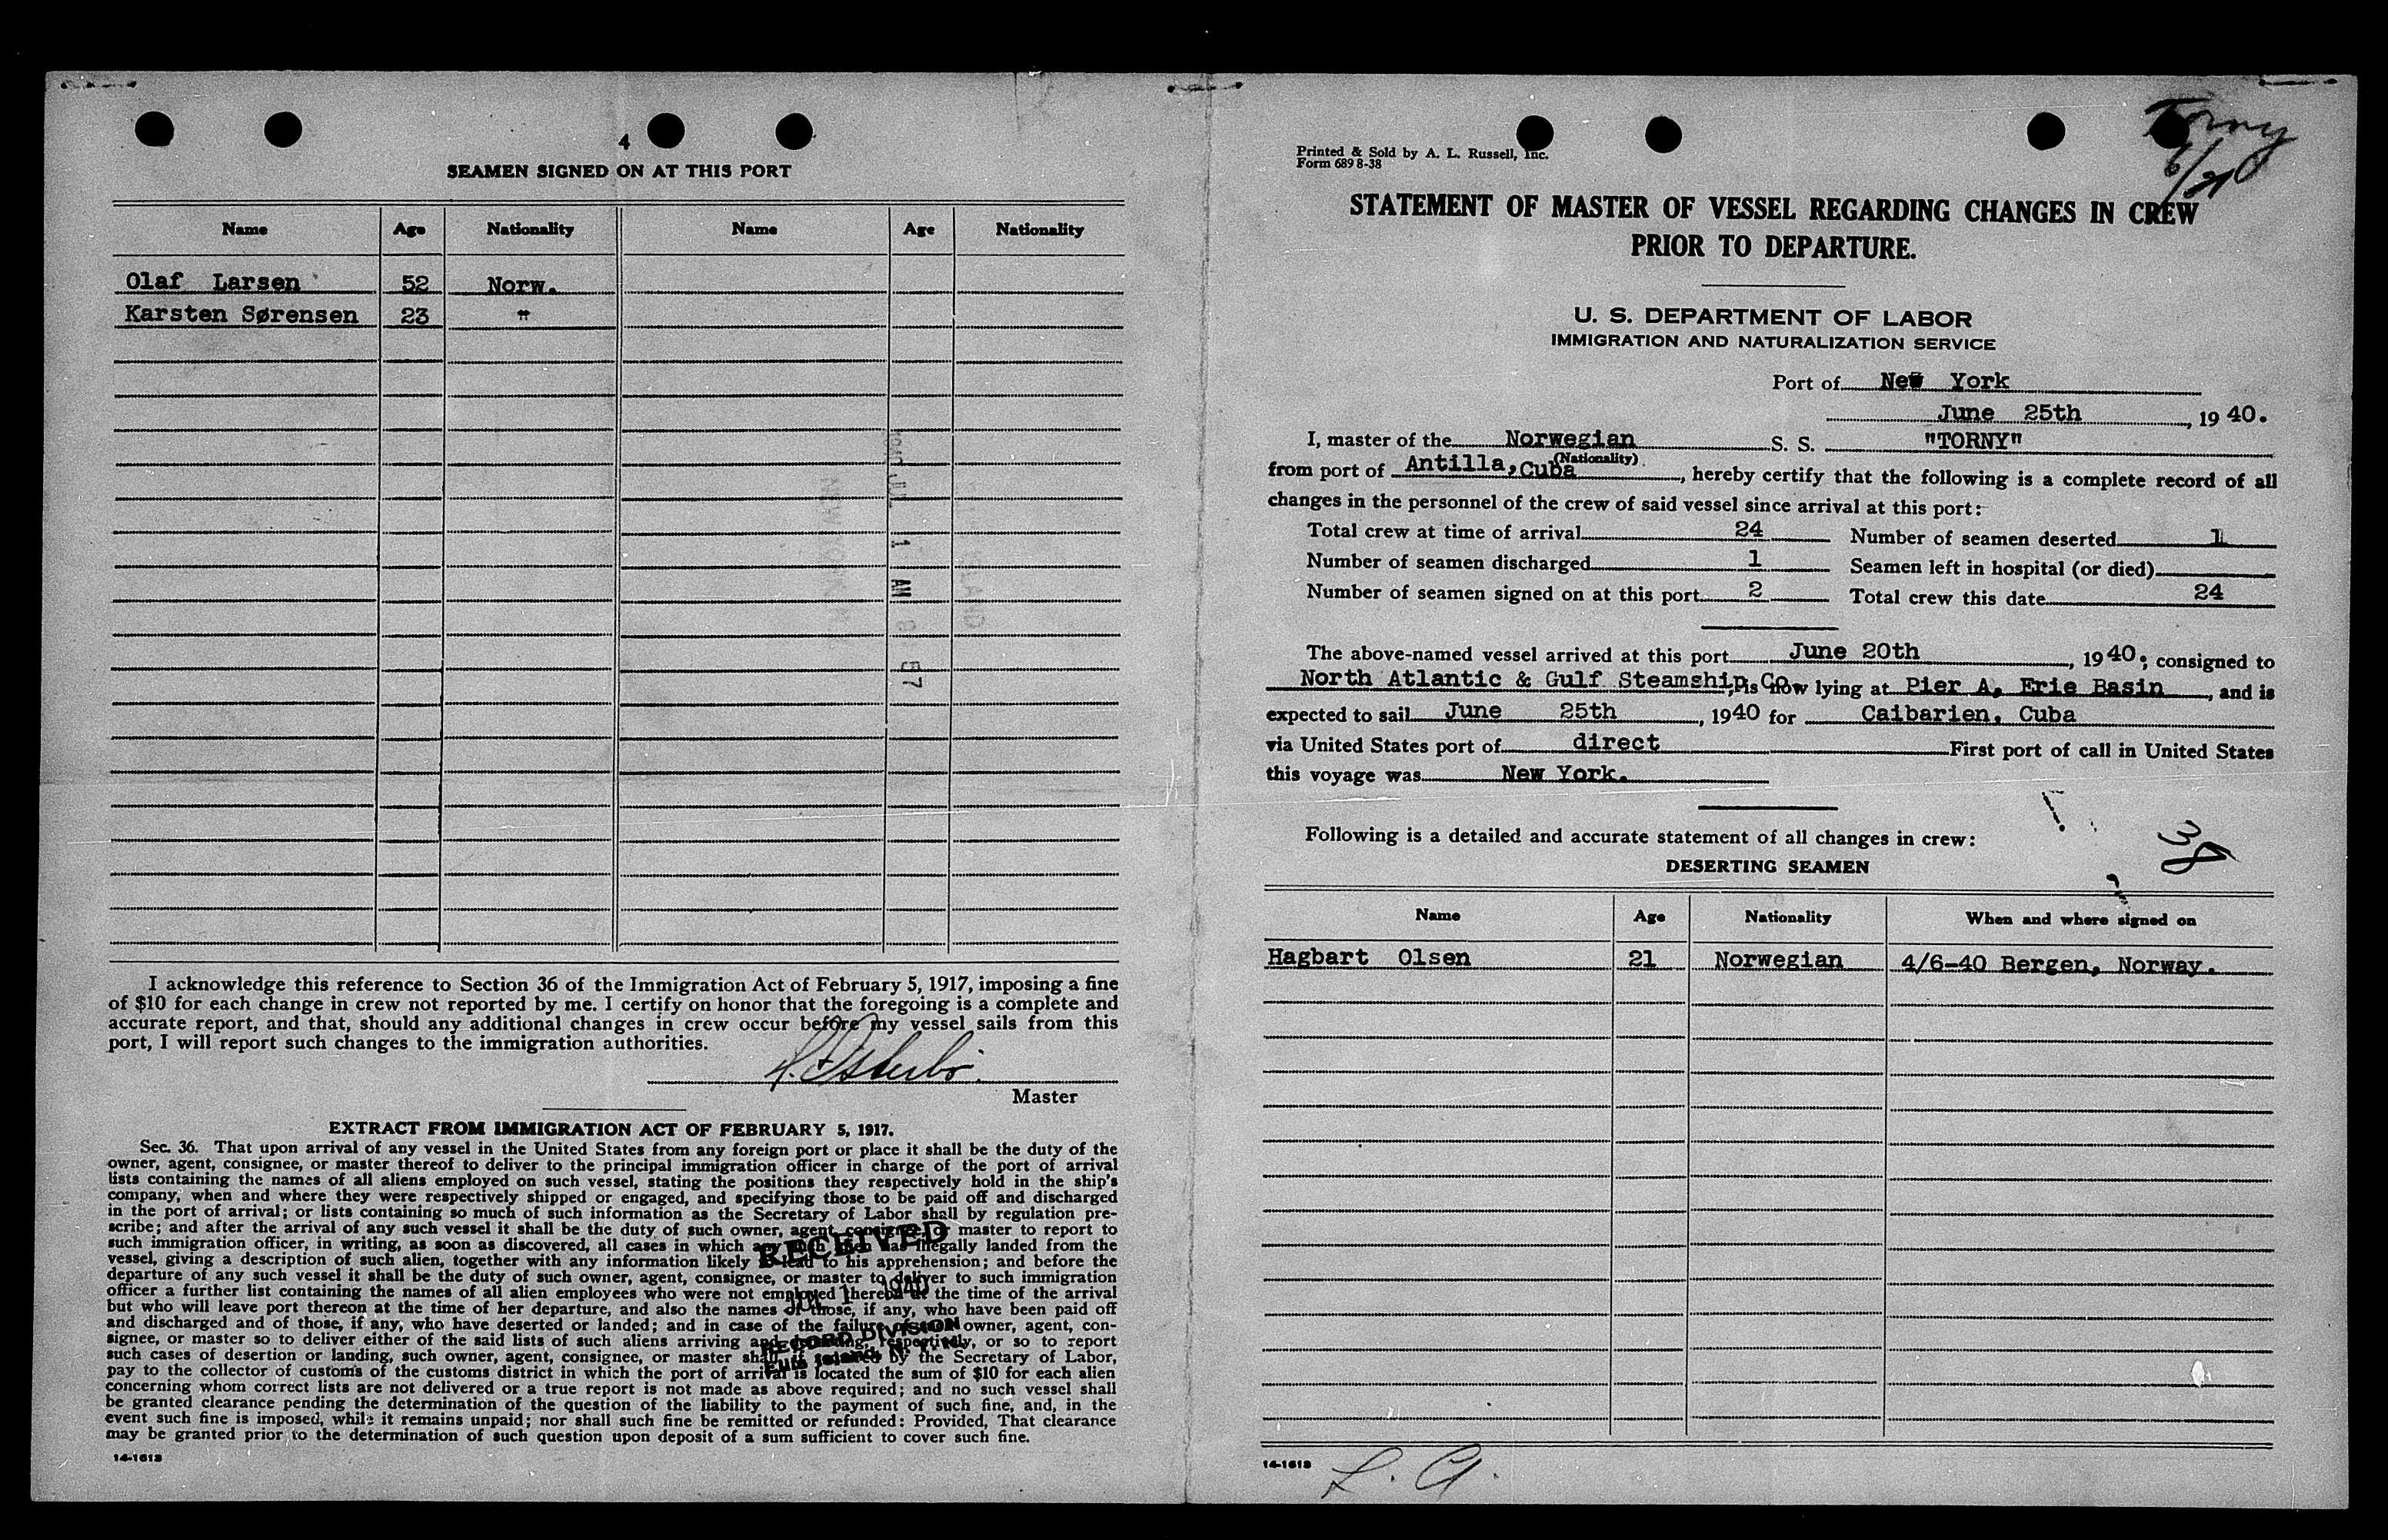 4
SEAMEN SIGNED ON AT THIS PORT
Name Age Nationality Name Age Nationality
Olaf Larsen 52 Norw.
Karsten Sørensen 23 "
I acknowledge this reference to Section 36 of the Immigration Act of February 5, 1917, imposing a fine
of $10 for each change in crew not reported by me. I certify on honor that the foregoing is a complete and
accurate report, and that, should any additional changes in crew occur before my vessel sails from this
port, I will report such changes to the immigration authorities.
Master
EXTRACT FROM IMMIGRATION ACT OF FEBRUARY 5, 1917.
Sec. 36. That upon arrival of any vessel in the United States from any foreign port or place it shall be the duty of the
owner, agent, consignee, or master thereof to deliver to the principal immigration officer in charge of the port of arrival
lists containing the names of all aliens employed on such vessel, stating the positions they respectively hold in the ship's
company, when and where they were respectively shipped or engaged, and specifying those to be paid off and discharged
in the port of arrival; or lists containing so much of such information as the Secretary of Labor shall by regulation pre-
scribe; and after the arrival of any such vessel it shall be the duty of such owner, agent, consignee, or master to report to
such immigration officer, in writing, as soon as discovered, all cases in which any such alien has illegally landed from the
vessel, giving a description of such alien, together with any information likely to lead to his apprehension; and before the
departure of any such vessel it shall be the duty of such owner, agent, consignee, or master to deliver to such immigration
officer a further list containing the names of all alien employees who were not employed thereon at the time of the arrival
but who will leave port thereon at the time of her departure, and also the names of those, if any, who have been paid off
and discharged and of those, if any, who have deserted or landed; and in case of the failure of such owner, agent, con-
signee, or master so to deliver either of the said lists of such aliens arriving and departing, respectively, or so to report
such cases of desertion or landing, such owner, agent, consignee, or master shall, if required by the Secretary of Labor,
pay to the collector of customs of the customs district in which the port of arrival is located the sum of $10 for each alien
concerning whom correct lists are not delivered or a true report is not made as above required; and no such vessel shall
be granted clearance pending the determination of the question of the liability to the payment of such fine, and, in the
event such fine is imposed, while it remains unpaid; nor shall such fine be remitted or refunded: Provided, That clearance
may be granted prior to the determination of such question upon deposit of a sum sufficient to cover such fine.
14-1613
RECEIVED
JUL 1 1940
RECORD DIVISION
Ellis Island, N. Y. H.
Torny
6/21
Printed & Sold by A. L. Russell, Inc.
Form 689 8-38
STATEMENT OF MASTER OF VESSEL REGARDING CHANGES IN CREW
PRIOR TO DEPARTURE.
U. S. DEPARTMENT OF LABOR
IMMIGRATION AND NATURALIZATION SERVICE
Port of New York
June 25th, 1940.
I, master of the Norwegian S. S. "TORNY"
(Nationality)
from port of Antilla, Cuba, hereby certify that the following is a complete record of all
changes in the personnel of the crew of said vessel since arrival at this port:
Total crew at time of arrival 24 Number of seamen deserted 1
Number of seamen discharged 1 Seamen left in hospital (or died)
Number of seamen signed on at this port 2 Total crew this date 24
The above-named vessel arrived at this port June 20th, 1940; consigned to
North Atlantic & Gulf Steamship Co, is now lying at Pier A, Erie Basin, and is
expected to sail June 25th, 1940 for Caibarien, Cuba
via United States port of direct First port of call in United States
this voyage was New York.
38
Following is a detailed and accurate statement of all changes in crew:
DESERTING SEAMEN
Name Age Nationality When and where signed on
Hagbart Olsen 21 Norwegian 4/6-40 Bergen, Norway.
14-1613
L. A.